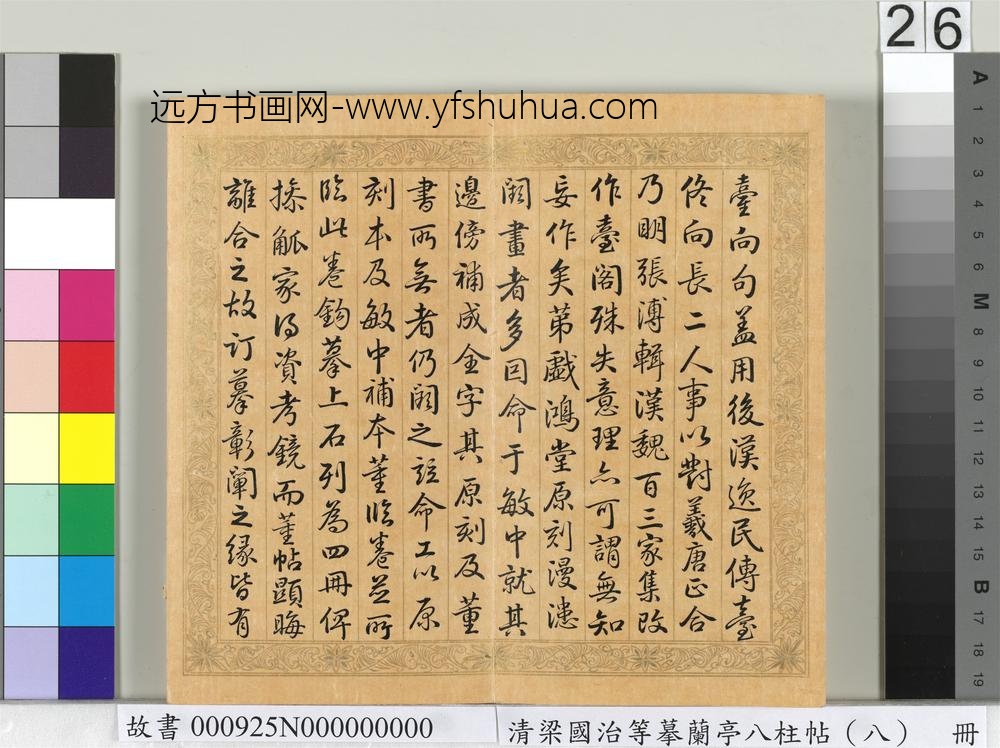 26
远方书画网-www.yfshuhua.com
臺向句盖用後漢逸民傳臺
佟向長二人事以對羲唐正合
乃明張溥輯漢魏百三家集改
作臺阁殊失意理亦可謂無知
妄作矣苐戱鴻堂原刻漫漶
阙畫者多回命于敏中就其
邊傍補成全字其原刻及董
書所無者仍阙之茲命工以原
刻本及敏中補本董臨卷並所
臨此卷鈎摹上石列為四冊俾
操觚家得資考鏡而董帖顕晦
離合之故訂摹彰闡之緣皆有
A
1
2
3
4
5
6
M
8
9
10
11
12
13
14
15
B
17
18
19
故書 000925N000000000
清梁國治等摹蘭亭八柱帖（八） 冊